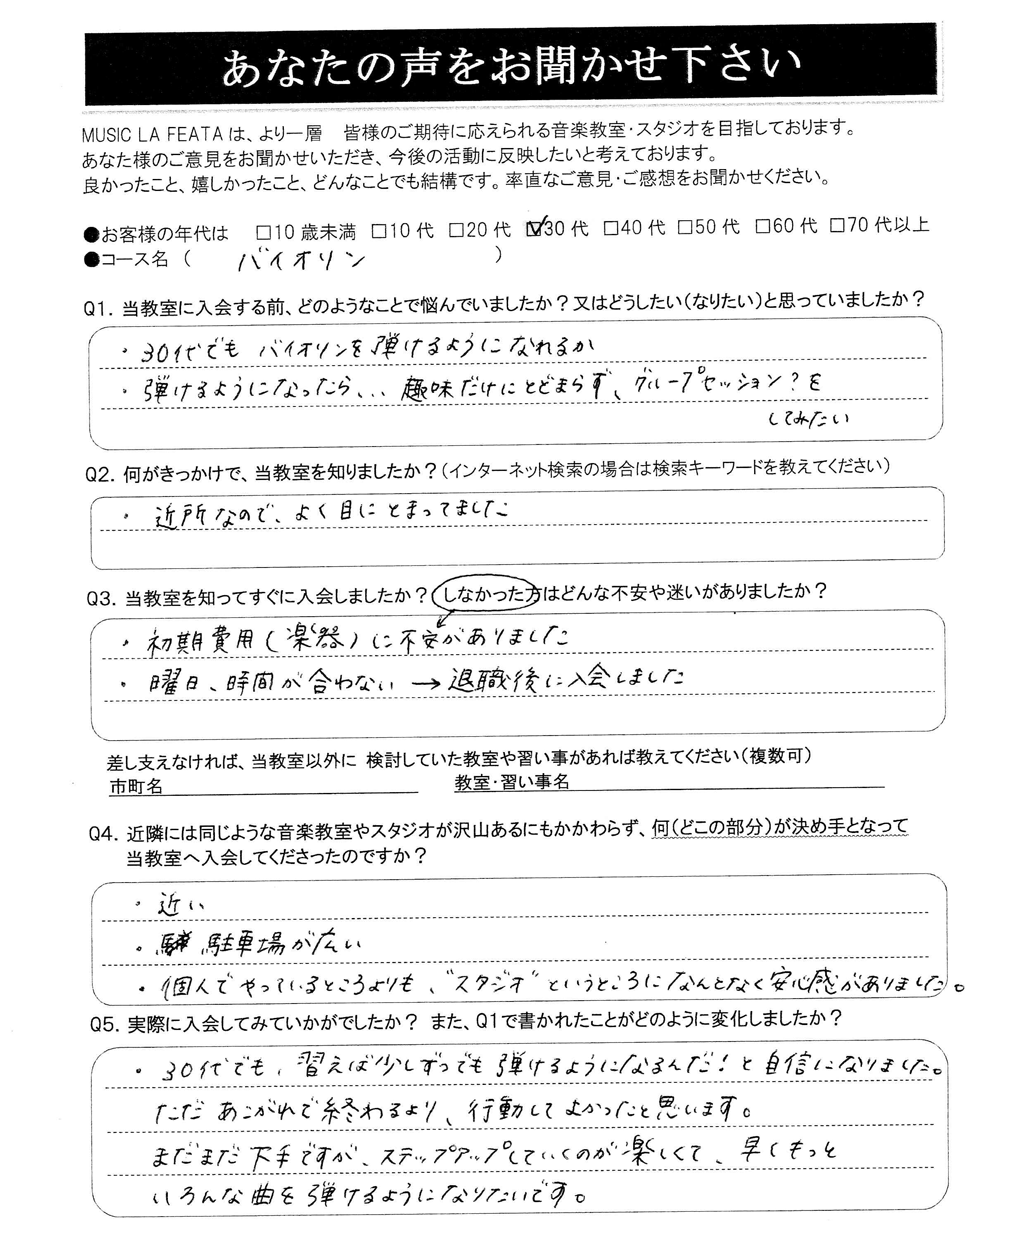 あなたの声をお聞かせ下さい
MUSIC LA FEATAは、より一層　皆様のご期待に応えられる音楽教室・スタジオを目指しております。
あなた様のご意見をお聞かせいただき、今後の活動に反映したいと考えております。
良かったこと、嬉しかったこと、どんなことでも結構です。率直なご意見・ご感想をお聞かせください。
●お客様の年代は　□10歳未満 □10代 □20代 ☑30代 □40代 □50代 □60代 □70代以上
●コース名（　バイオリン　）
Q1. 当教室に入会する前、どのようなことで悩んでいましたか？又はどうしたい（なりたい）と思っていましたか？
・30代でも バイオリンを弾けるようになれるか
・弾けるようになったら、、、趣味だけにとどまらず、グループセッション？を
してみたい
Q2. 何がきっかけで、当教室を知りましたか？（インターネット検索の場合は検索キーワードを教えてください）
・近所なので、よく目にとまってました
Q3. 当教室を知ってすぐに入会しましたか？しなかった方はどんな不安や迷いがありましたか？
・初期費用（楽器）に不安がありました
・曜日、時間が合わない → 退職後に入会しました
差し支えなければ、当教室以外に 検討していた教室や習い事があれば教えてください（複数可）
市町名　教室・習い事名
Q4. 近隣には同じような音楽教室やスタジオが沢山あるにもかかわらず、何（どこの部分）が決め手となって
当教室へ入会してくださったのですか？
・近い
・駐車場が広い
・個人でやっているところよりも、"スタジオ"というところになんとなく安心感がありました。
Q5. 実際に入会してみていかがでしたか？ また、Q1で書かれたことがどのように変化しましたか？
・30代でも、習えば少しずつでも弾けるようになるんだ！と自信になりました。
ただあこがれで終わるより、行動してよかったと思います。
まだまだ下手ですが、ステップアップしていくのが楽しくて、早くもっと
いろんな曲を弾けるようになりたいです。